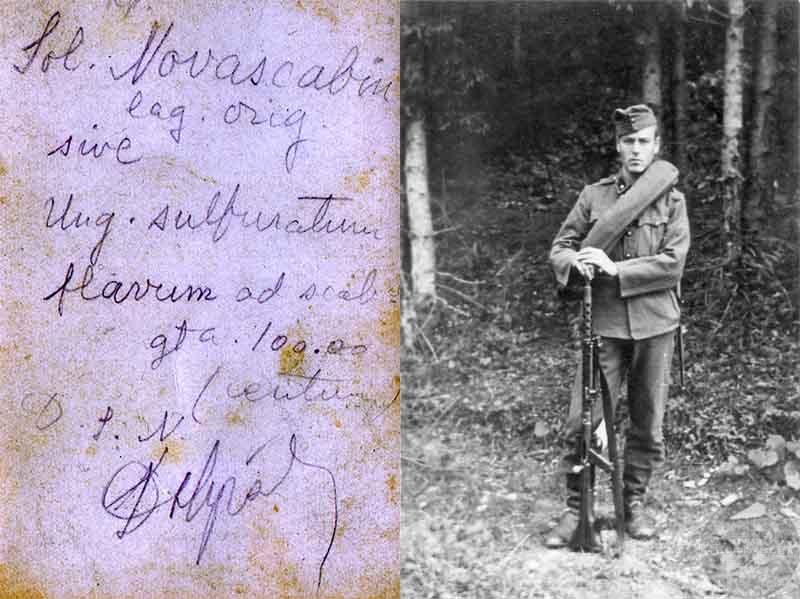 Rp.
Sol. Novascabin
lag. orig.
sive
Ung. sulfuratum
flavum ad scab.
gta. 100.00
(centum)
D. S. N.